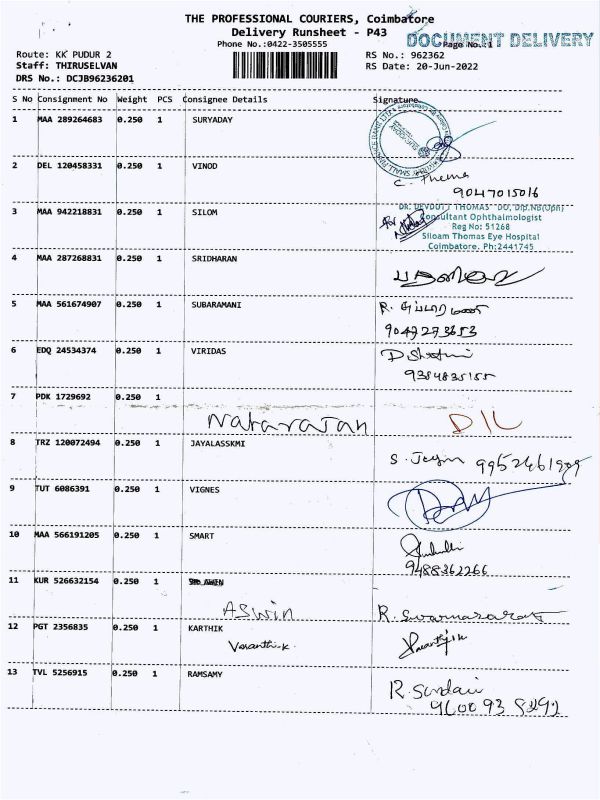 THE PROFESSIONAL COURIERS, Coimbatore
Delivery Runsheet - P43
Phone No.:0422-3505555
DOCUMENT DELIVERY
Page No.:1
Route: KK PUDUR 2
Staff: THIRUSELVAN
DRS No.: DCJB96236201
RS No.: 962362
RS Date: 20-Jun-2022
S No Consignment No Weight PCS Consignee Details Signature
1 MAA 289264683 0.250 1 SURYADAY
2 DEL 120458331 0.250 1 VINOD
9047015016
3 MAA 942218831 0.250 1 SILOM
DR. DEVDUTT THOMAS DO, Dip.NB(Oph)
Consultant Ophthalmologist
Reg No: 51268
Siloam Thomas Eye Hospital
Coimbatore. Ph:2441745
4 MAA 287268831 0.250 1 SRIDHARAN
5 MAA 561674907 0.250 1 SUBARAMANI
6 EDQ 24534374 0.250 1 VIRIDAS
9384835155
7 PDK 1729692 0.250 1
Natarajan
8 TRZ 120072494 0.250 1 JAYALASSKMI
9 TUT 6086391 0.250 1 VIGNES
10 MAA 566191205 0.250 1 SMART
9488362266
11 KUR 526632154 0.250 1
ASWIN
12 PGT 2356835 0.250 1 KARTHIK
Vasanthi.K.
13 TVL 5256915 0.250 1 RAMSAMY
R. Sundari